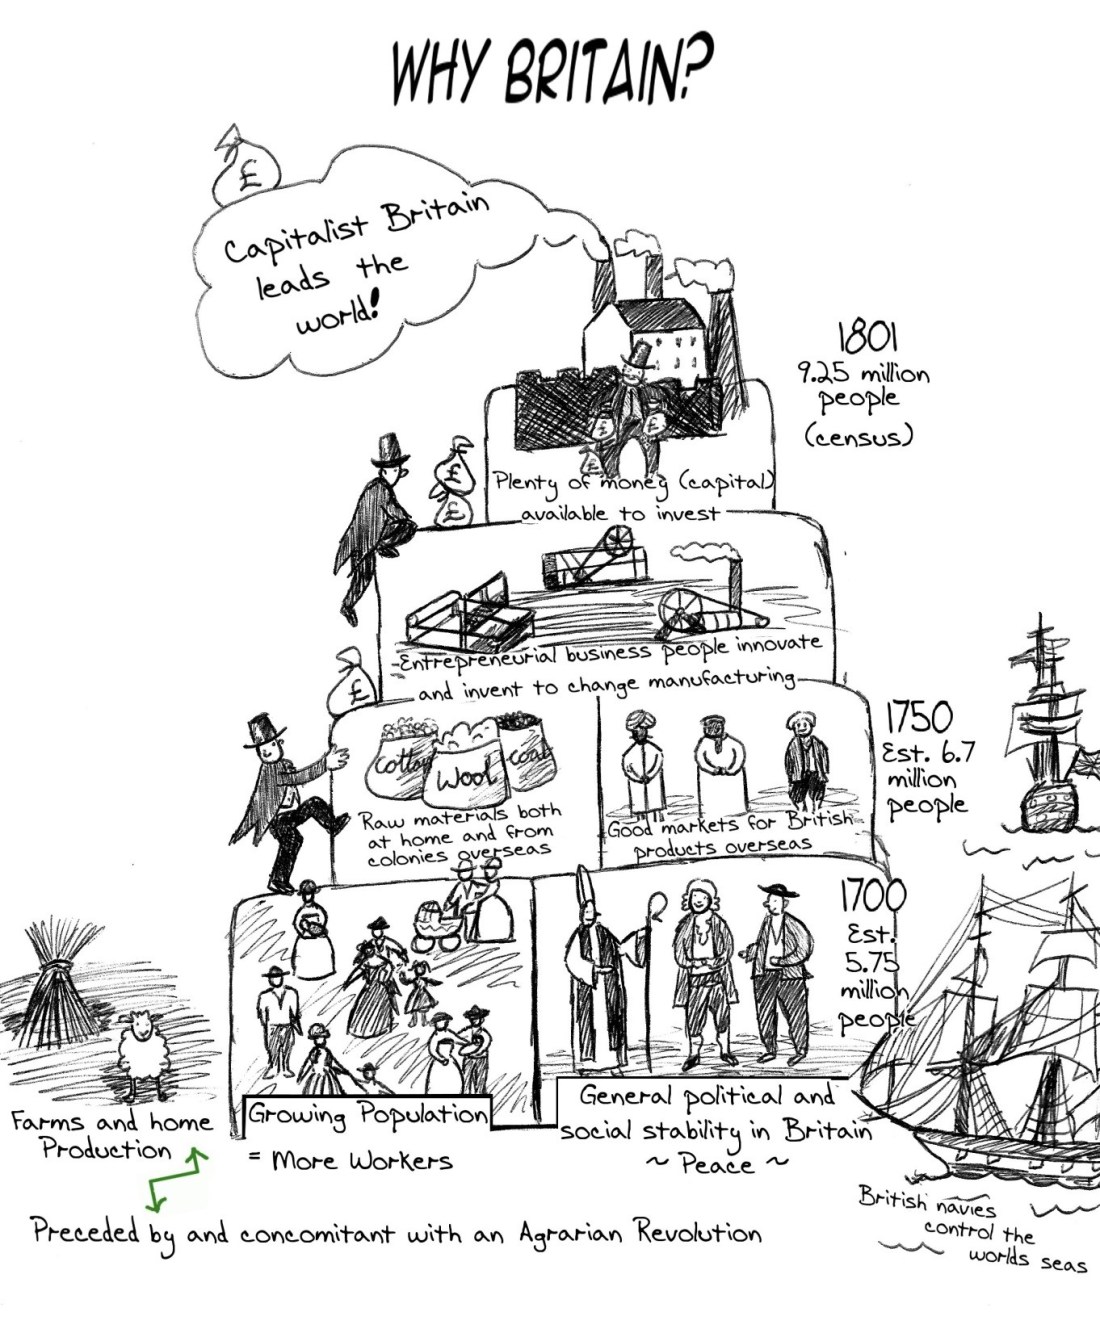 WHY BRITAIN?
£
Capitalist Britain
leads the
world!
1801
9.25 million
people
(census)
£
£
£
£
£
Plenty of money (capital)
available to invest
Entrepreneurial business people innovate
and invent to change manufacturing
£
1750
Est. 6.7
million
people
Cotton
Wool
Coal
Raw materials both
at home and from
colonies overseas
Good markets for British
products overseas
1700
Est.
5.75
million
people
Farms and home
Production
Growing Population
= More Workers
General political and
social stability in Britain
~ Peace ~
British navies
control the
worlds seas
Preceded by and concomitant with an Agrarian Revolution